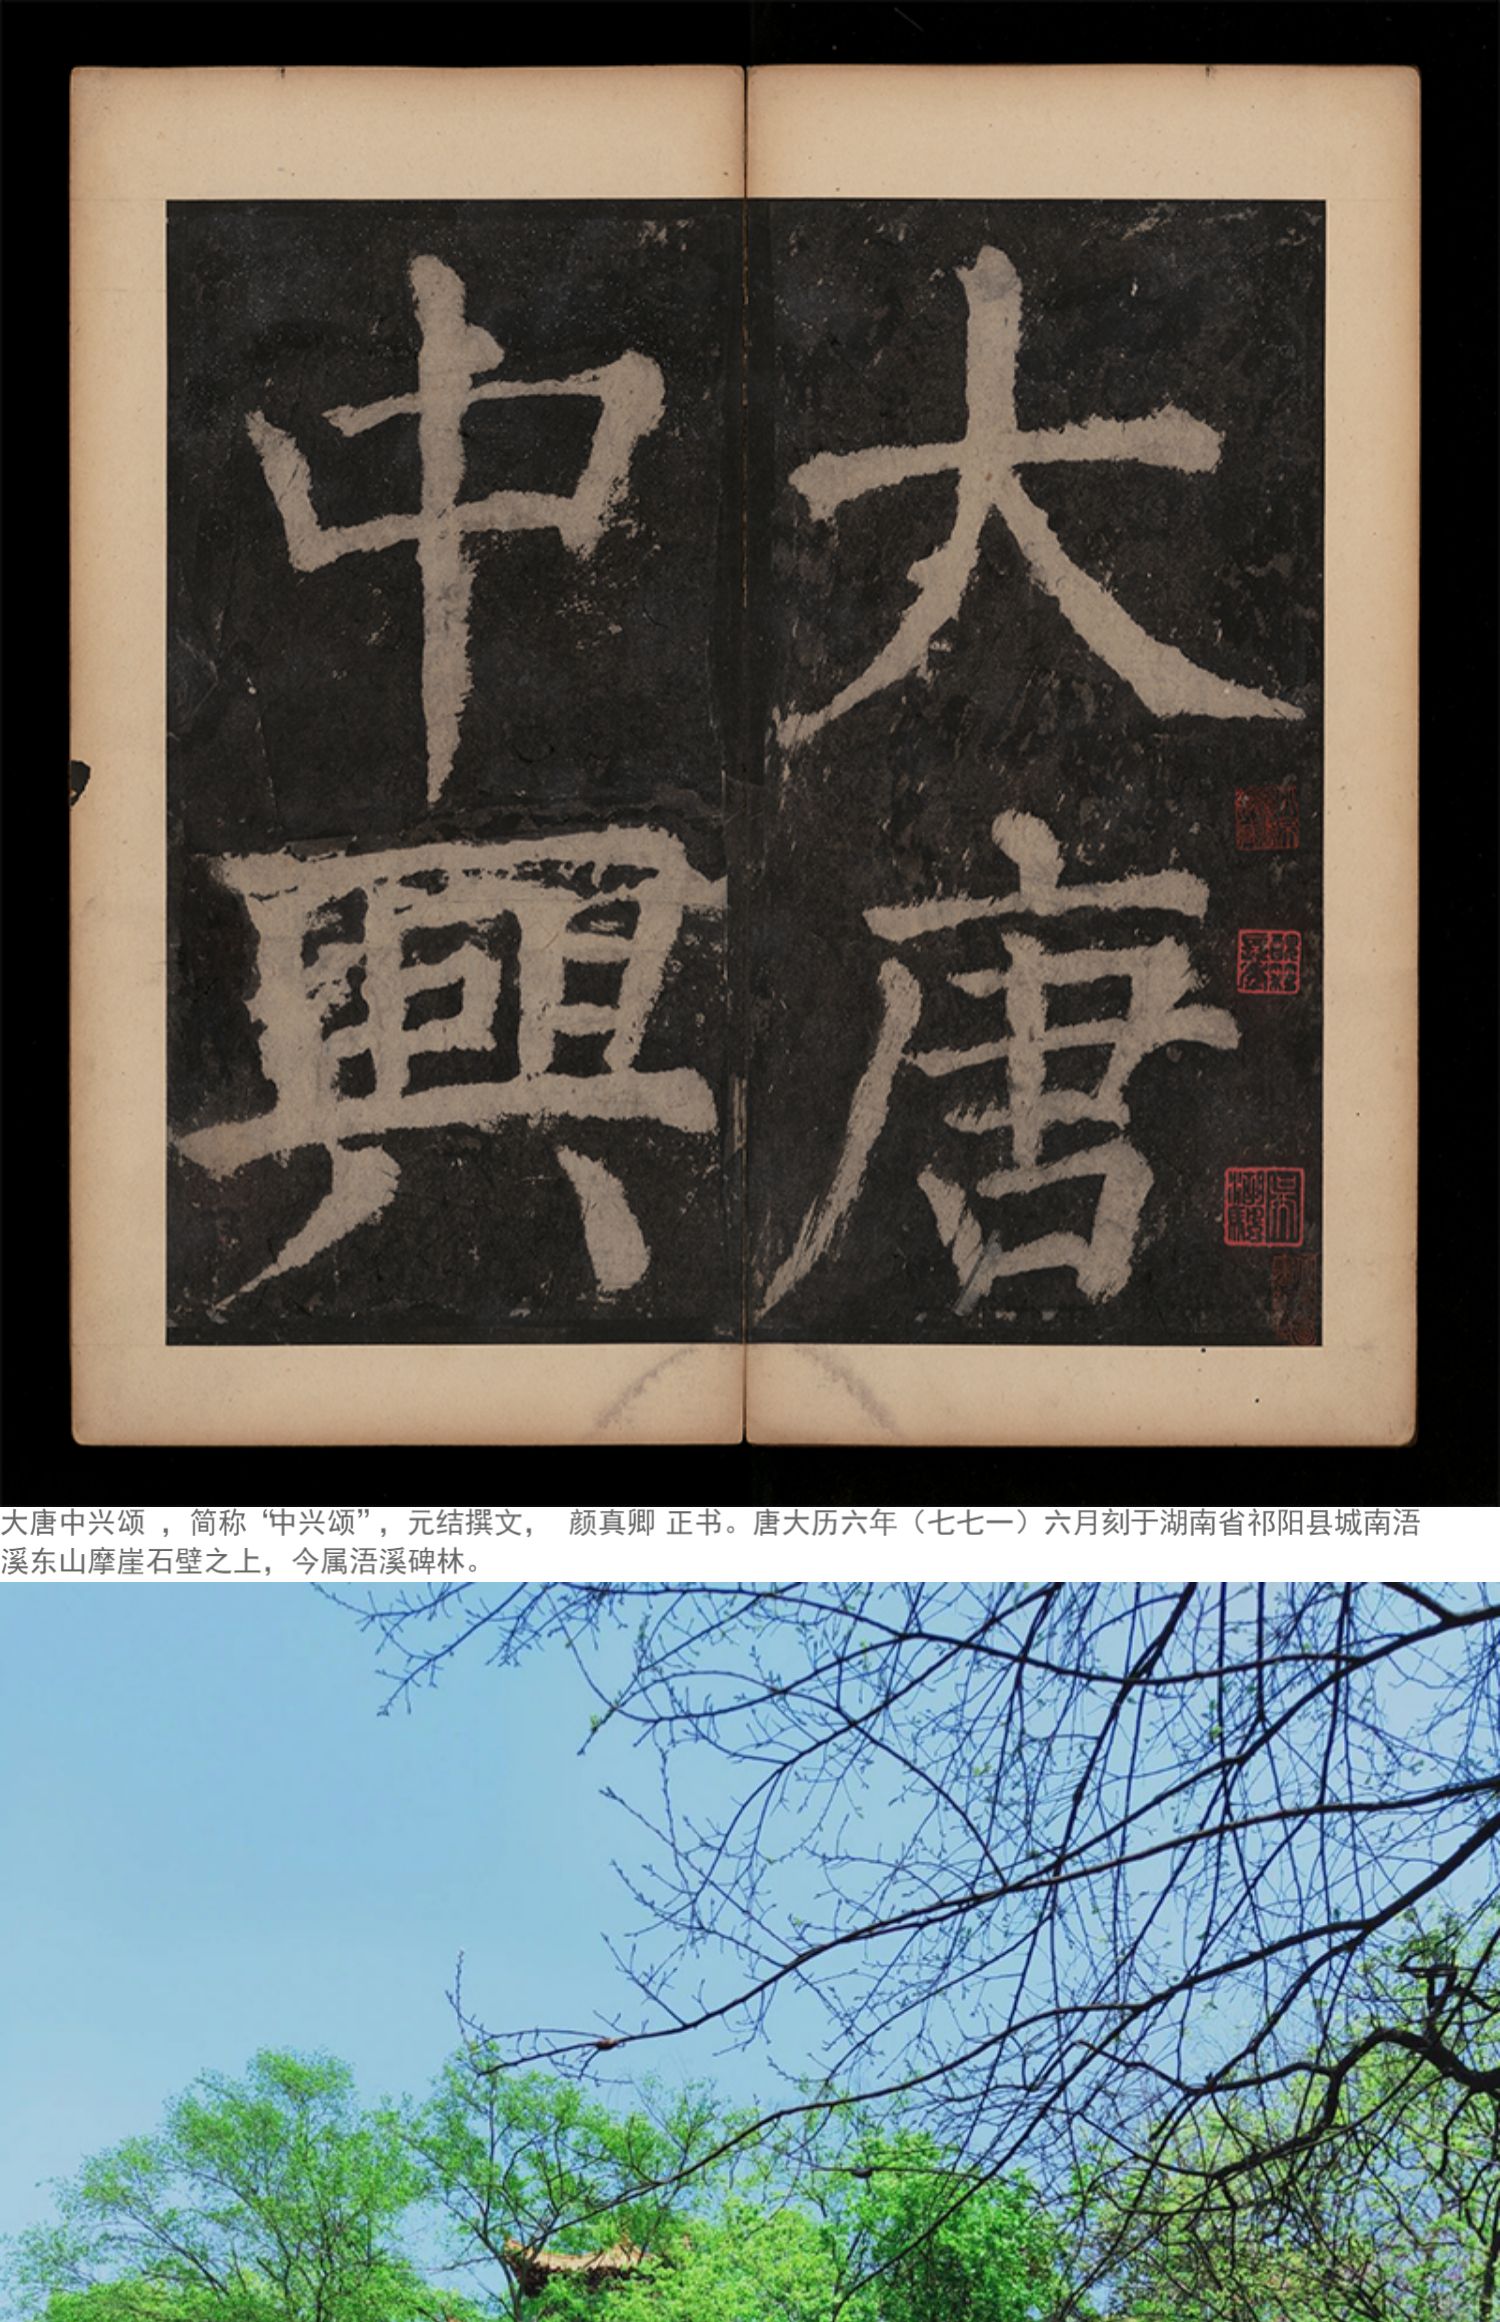 大唐
中興
大唐中兴颂 ，简称“中兴颂”，元结撰文， 颜真卿 正书。唐大历六年（七七一）六月刻于湖南省祁阳县城南浯
溪东山摩崖石壁之上，今属浯溪碑林。